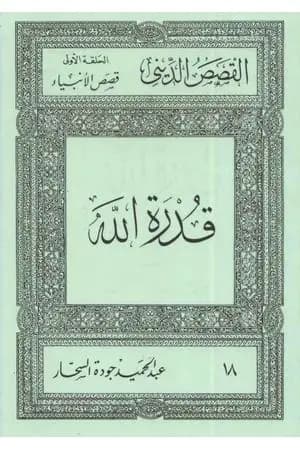 القصص الدينى
الحلقة الأولى
قصص الأنبياء
قدرة الله
١٨
عبد الحميد جودة السحار